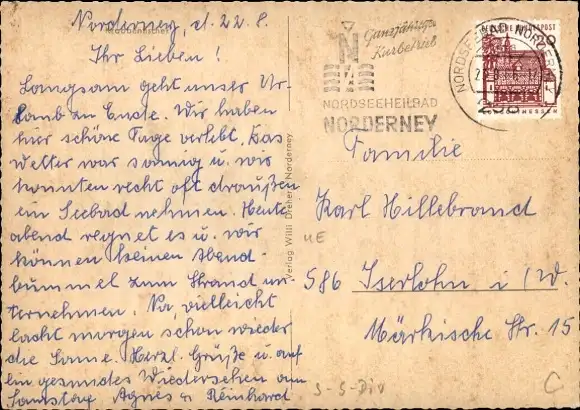 Norderney, d. 22. 8.
Ihr Lieben!
Langsam geht unser Ur-
laub zu Ende. Wir haben
hier schöne Tage verlebt, das
Wetter war sonnig u. wir
konnten recht oft draußen
ein Seebad nehmen. Heute
abend regnet es u. wir
können keinen Abend-
bummel zum Strand un-
ternehmen. Na, vielleicht
lacht morgen schon wieder
die Sonne. Herzl. Grüße u. auf
ein gesundes Wiedersehen am
Samstag Agnes u Reinhard
Verlag Willi Dreher, Norderney
Ganzjähriger
Kurbetrieb
N
NORDSEEHEILBAD
NORDERNEY
NORDSEEBAD NORDERNEY
BUNDESPOST
20
HESSEN
Familie
Karl Hillebrand
586 Iserlohn i/W.
Märkische Str. 15
S-S-Div
C